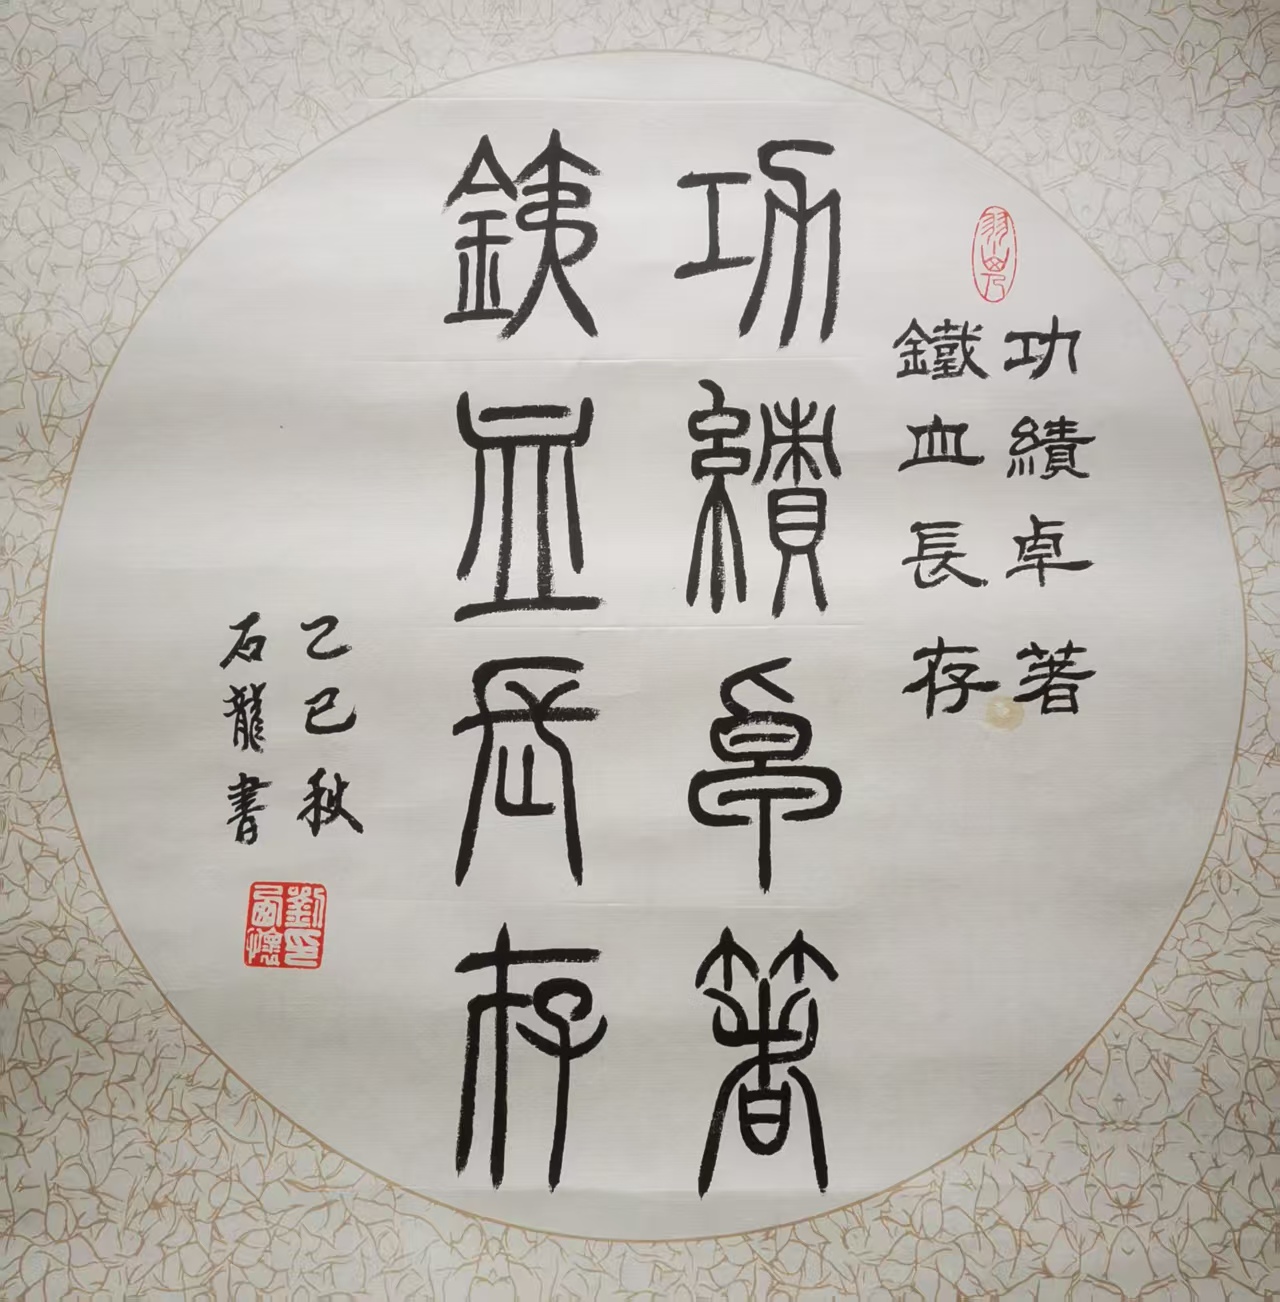 功績卓著
鐵血長存
功績卓著
銕血長存
乙巳秋
石龍書